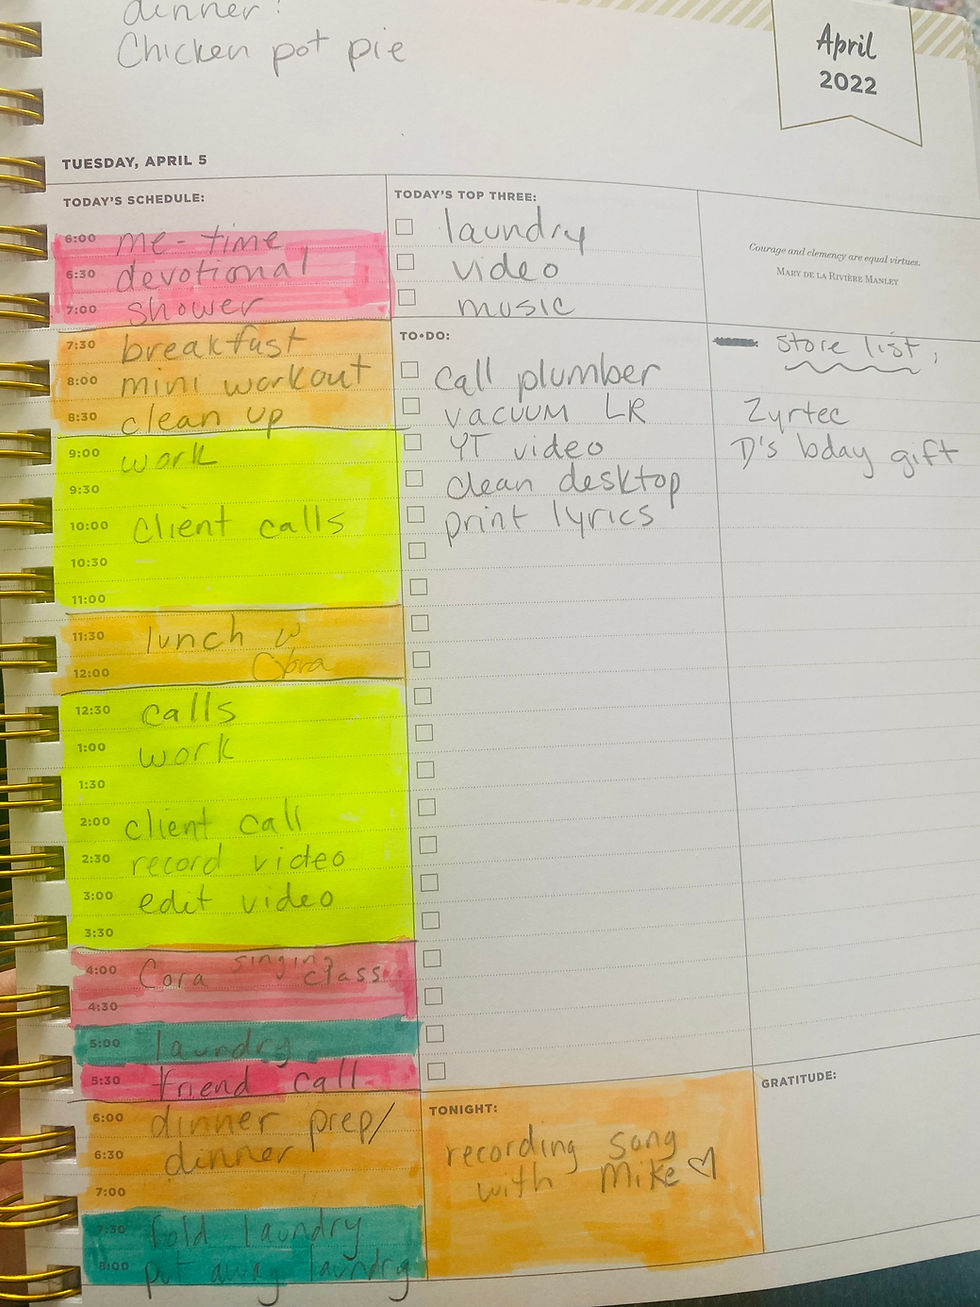 dinner:
Chicken pot pie
April
2022
TUESDAY, APRIL 5
TODAY'S SCHEDULE:
6:00 me-time
6:30 devotional
7:00 shower
7:30 breakfast
8:00 mini workout
8:30 clean up
9:00 work
9:30
10:00 client calls
10:30
11:00
11:30 lunch w
12:00 Cora
12:30 calls
1:00 work
1:30
2:00 client call
2:30 record video
3:00 edit video
3:30
4:00 Cora singing class
4:30
5:00 laundry
5:30 friend call
6:00 dinner prep/
6:30 dinner
7:00
7:30 fold laundry
8:00 put away laundry
TODAY'S TOP THREE:
laundry
video
music
TO•DO:
call plumber
vacuum LR
YT video
clean desktop
print lyrics
TONIGHT:
recording song
with Mike
Courage and clemency are equal virtues.
MARY DE LA RIVIÈRE MANLEY
store list:
Zyrtec
D's bday gift
GRATITUDE: